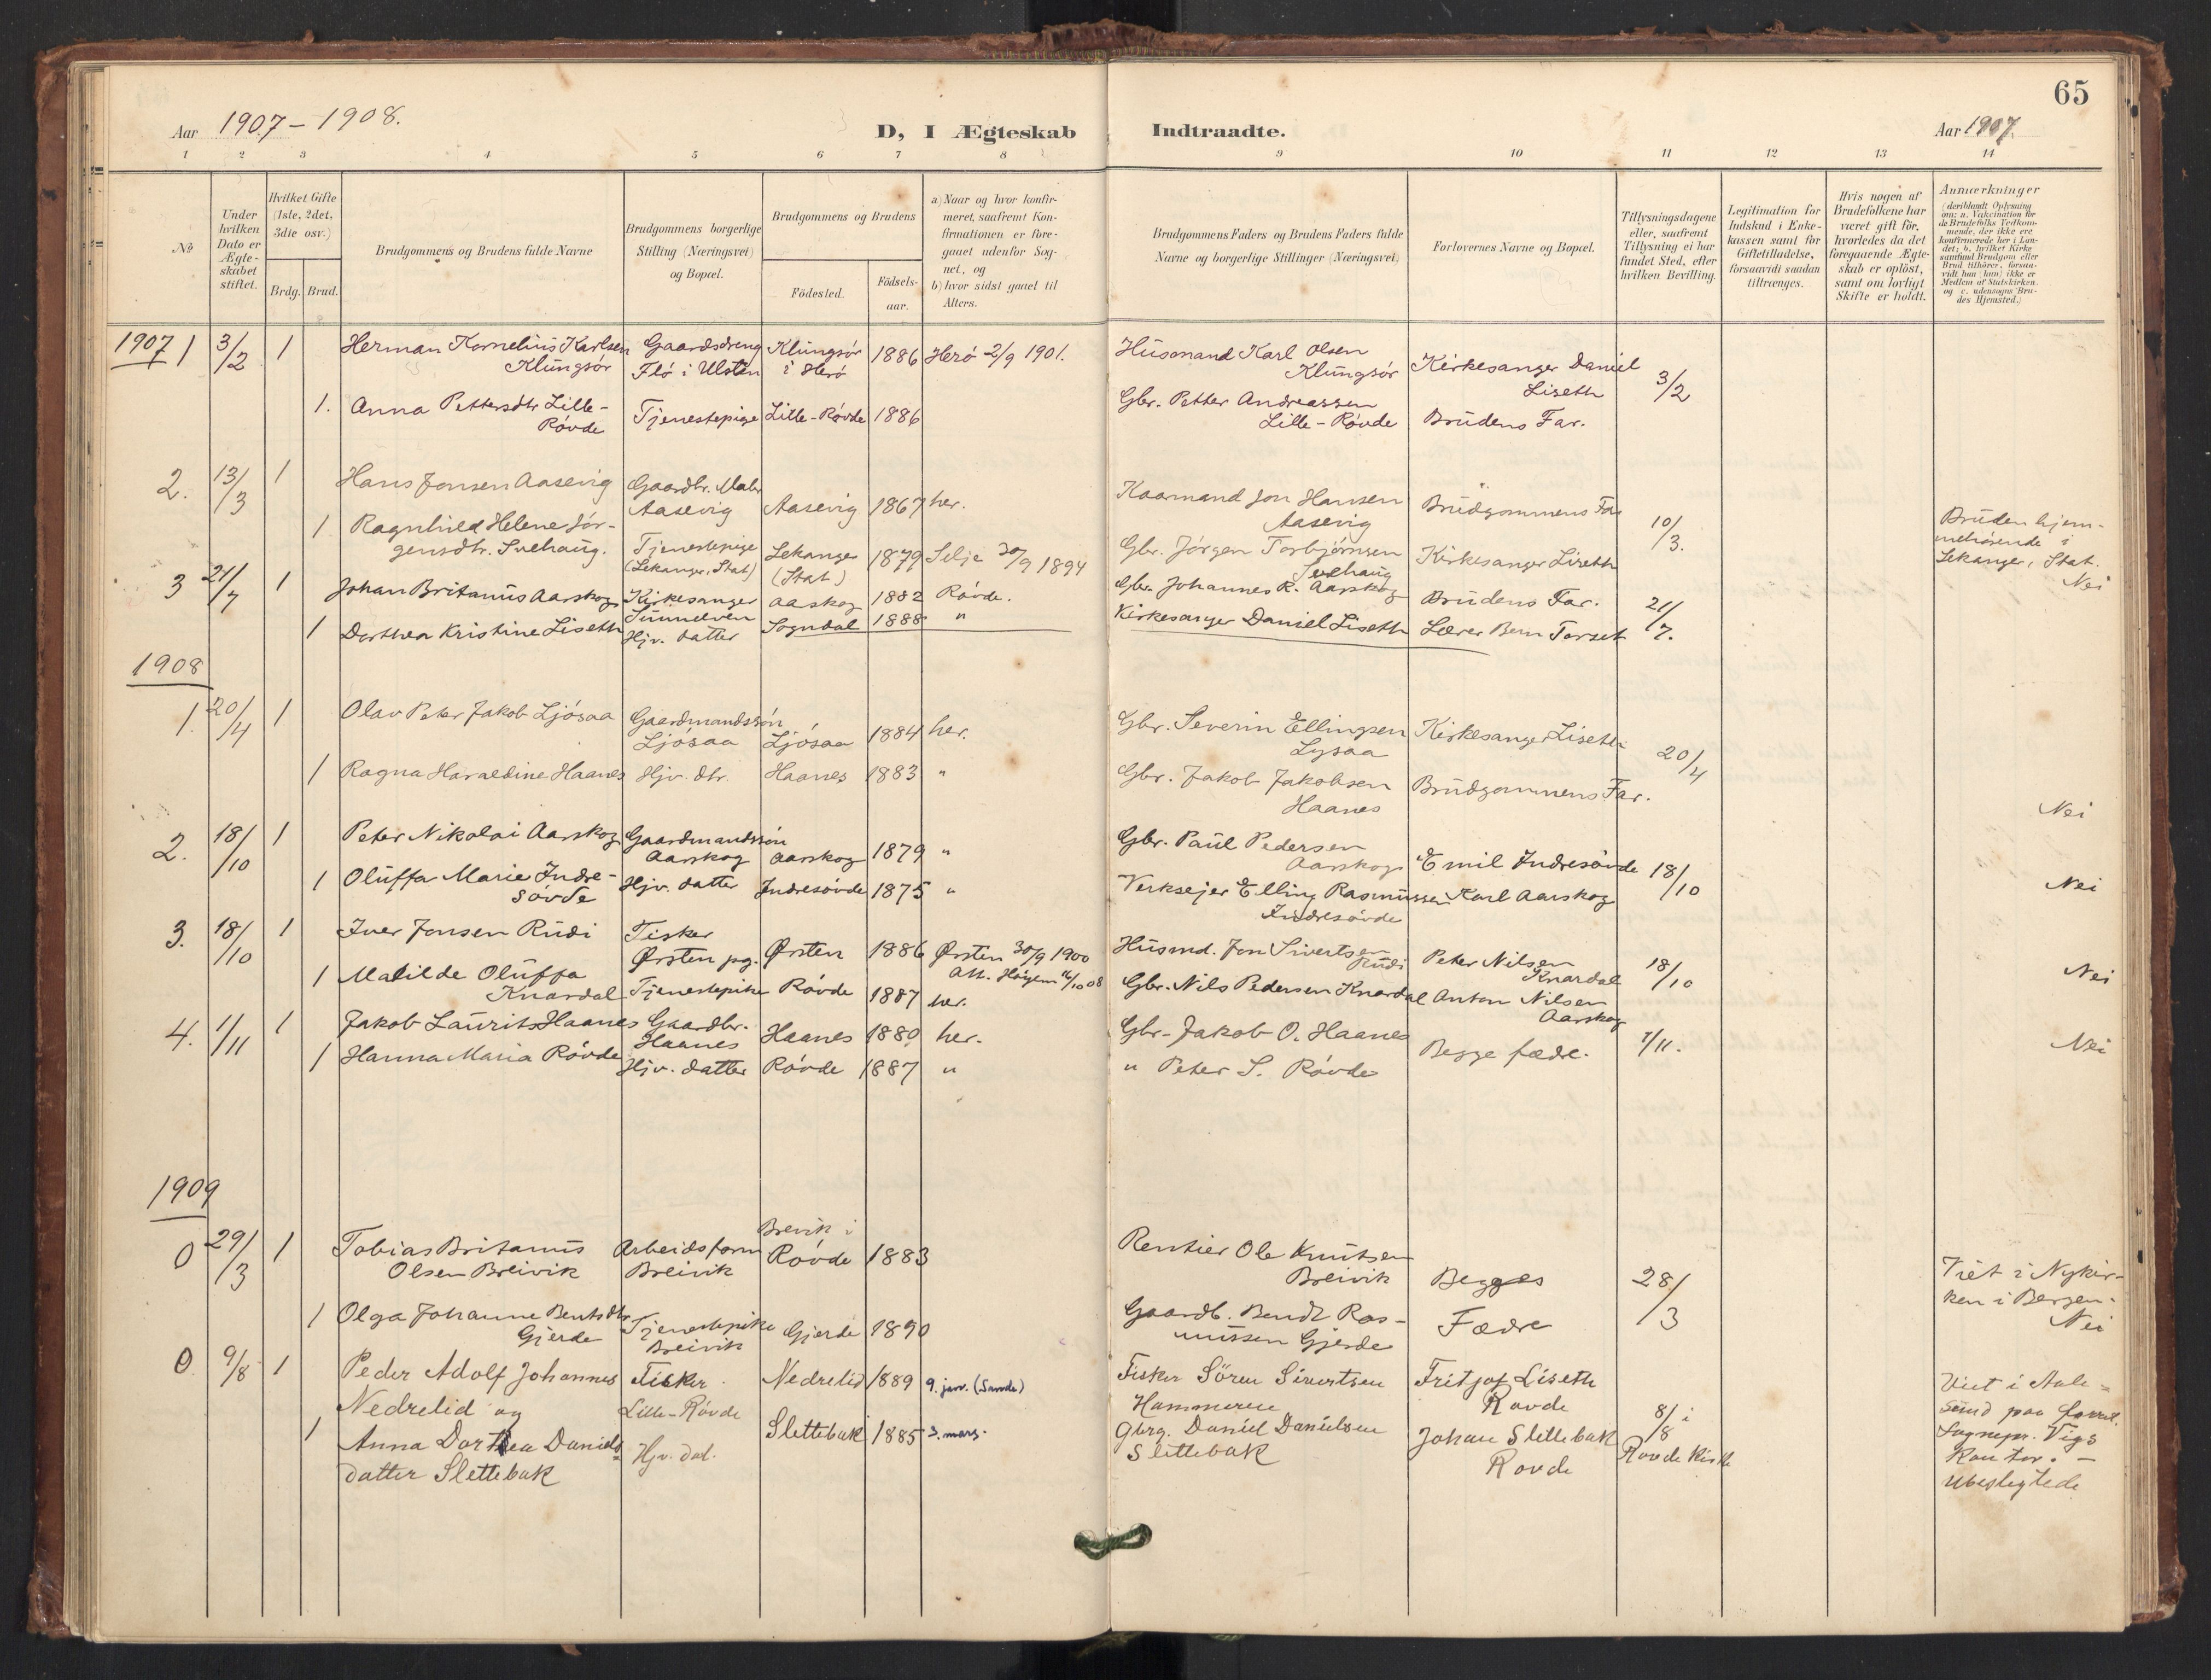 65
Aar 1907 – 1908.
D, I Ægteskab Indtraadte.
Aar 1907
1 2 3 4 5 6 7 8 9 10 11 12 13 14
No
Under hvilken Dato er Ægte-skabet stiftet.
Hvilket Gifte (1ste, 2det, 3die osv.)
Brdg. Brud.
Brudgommens og Brudens fulde Navne
Brudgommens borgerlige Stilling (Næringsvei) og Bopæl.
Brudgommens og Brudens
Födested.
Födsels-aar.
a) Naar og hvor konfir-meret, saafremt Kon-firmationen er fore-gaaet udenfor Sog-net, og
b) hvor sidst gaaet til Alters.
Brudgommens Faders og Brudens Faders fulde Navne og borgerlige Stillinger (Næringsvei)
Forlovernes Navne og Bopæl.
Tillysningsdagene eller, saafremt Tillysning ei har fundet Sted, efter hvilken Bevilling.
Legitimation for Indskud i Enke-kassen samt for Giftetilladelse, forsaavidt saadan tiltrænges.
Hvis nogen af Brudefolkene har været gift för, hvorledes da det foregaaende Ægte-skab er oplöst, samt om lovligt Skifte er holdt.
Anmærkninger (deriblandt Oplysning om: a. Vakcination för de Brudefolks Vedkom-mende, der ikke ere konfirmerede her i Lan-det; b. hvilket Kirke samfund Brudgom eller Brud tilhörer, forsaa-vidt han (hun) ikke er Medlem af Statskirken. og c. udensogns Bru-des Hjemsted.)
1907 1 3/2 1 Herman Kornelius Karlsen Klungsör Gaardsdreng Flö i Ulsten Klungsör i Herö 1886 Herö 2/9 1901. Husmand Karl Olsen Klungsör Kirkesanger Daniel Liseth 3/2
1. Anna Pettersdtr Lille-Rövde Tjenestepige Lille-Rövde 1886 Gbr. Petter Andreassen Lille-Rövde Brudens Far.
2. 13/3 1 Hans Jonsen Aasevig Gaardbr. Maler Aasevig Aasevig 1867 her. Kaarmand Jon Hansen Aasevig Brudgommens Far 10/3.
1 Ragnhild Helene Jör-gensdtr. Svehaug. Tjenestepige (Lekanger, Stat) Lekanger (Stat) 1879 Selje 30/9 1894 Gbr. Jörgen Torbjörnsen Svehaug Kirkesanger Liseth Bruden hjem-mehörende i Lekanger, Stat. Nei
3 21/7 1 Johan Britanus Aarskog Kirkesanger Sunnelven Aarskog 1882 Rövde. Gbr. Johannes R. Aarskog Brudens Far. 21/7.
1 Dorthea Kristine Liseth Hjv. datter Sogndal 1888 " Kirkesanger Daniel Liseth Lærer Bern Torset
1908
1. 20/4 1 Olav Peter Jakob Ljösaa Gaardmandssön Ljösaa Ljösaa 1884 her. Gbr. Severin Ellingsen Lysaa Kirkesanger Liseth 20/4
1 Ragna Haraldine Haanes Hjv. dtr. Haanes 1883 " Gbr. Jakob Jakobsen Haanes Brudgommens Far. Nei
2. 18/10 1 Peter Nikolai Aarskog Gaardmandssön Aarskog Aarskog 1879 " Gbr. Paul Pedersen Aarskog Emil Indresövde 18/10
1 Oluffa Marie Indre-sövde Hjv. datter Indresövde 1875 " Verksejer Elling Rasmussen Indresövde Karl Aarskog Nei
3. 18/10 1 Iver Jonsen Rudi Fisker Ørsten pg. Ørsten 1886 Ørsten 30/9 1900 Husmd. Jon Sivertsen Rudi Peter Nilsen Knardal 18/10
1 Matilde Oluffa Knardal Tjenestepike Rövde 1887 her. Gbr. Nils Pedersen Knardal Anton Nilsen Aarskog Nei
4. 1/11 1 Jakob Laurits Haanes Gaardbr. Haanes Haanes 1880 her. Gbr. Jakob O. Haanes Begge fædre. 1/11. Nei
1 Hanna Maria Rövde Hjv. datter Rövde 1887 " " Peter S. Rövde
1909
0 29/3 1 Tobias Britanus Olsen Breivik Arbeidsform Breivik Brevik i Rövde 1883 Rentier Ole Knutsen Breivik Begges Fædre 28/3 Viet i Nykir-ken i Bergen. Nei
1 Olga Johanne Bentsdtr Gjerde Tjenestepike Breivik Gjerde 1890 Gaardb. Bendt Ras-mussen Gjerde
0 9/8 1 Peder Adolf Johannes Nedrelid og Fisker Lille-Rövde Nedrelid 1889 9. jan. (Sande) Fisker Sören Sivertsen Hammeren Fritjof Liseth Rovde 8/8 i Rovde kirke Viet i Aale-sund paa Sognepr. Vigs Kontor. – Ubeslegtede
1 Anna Dorthea Daniels-datter Slettebak Hjv. dat. Slettebak 1885 3. mars. Gbrg. Daniel Danielsen Slettebak Johan Slettebak Rovde